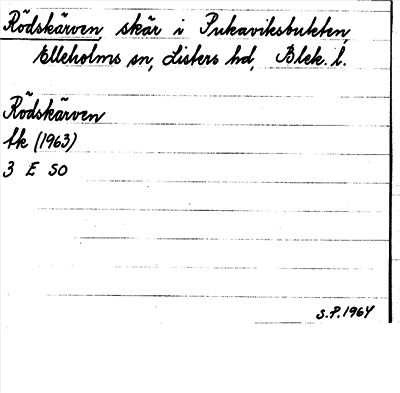 Rödskärven, skär i Pukaviksbukten
Elleholms sn, Listers hd, Blek. l.
Rödskärven
Ek (1963)
3 E SO
S.P. 1964